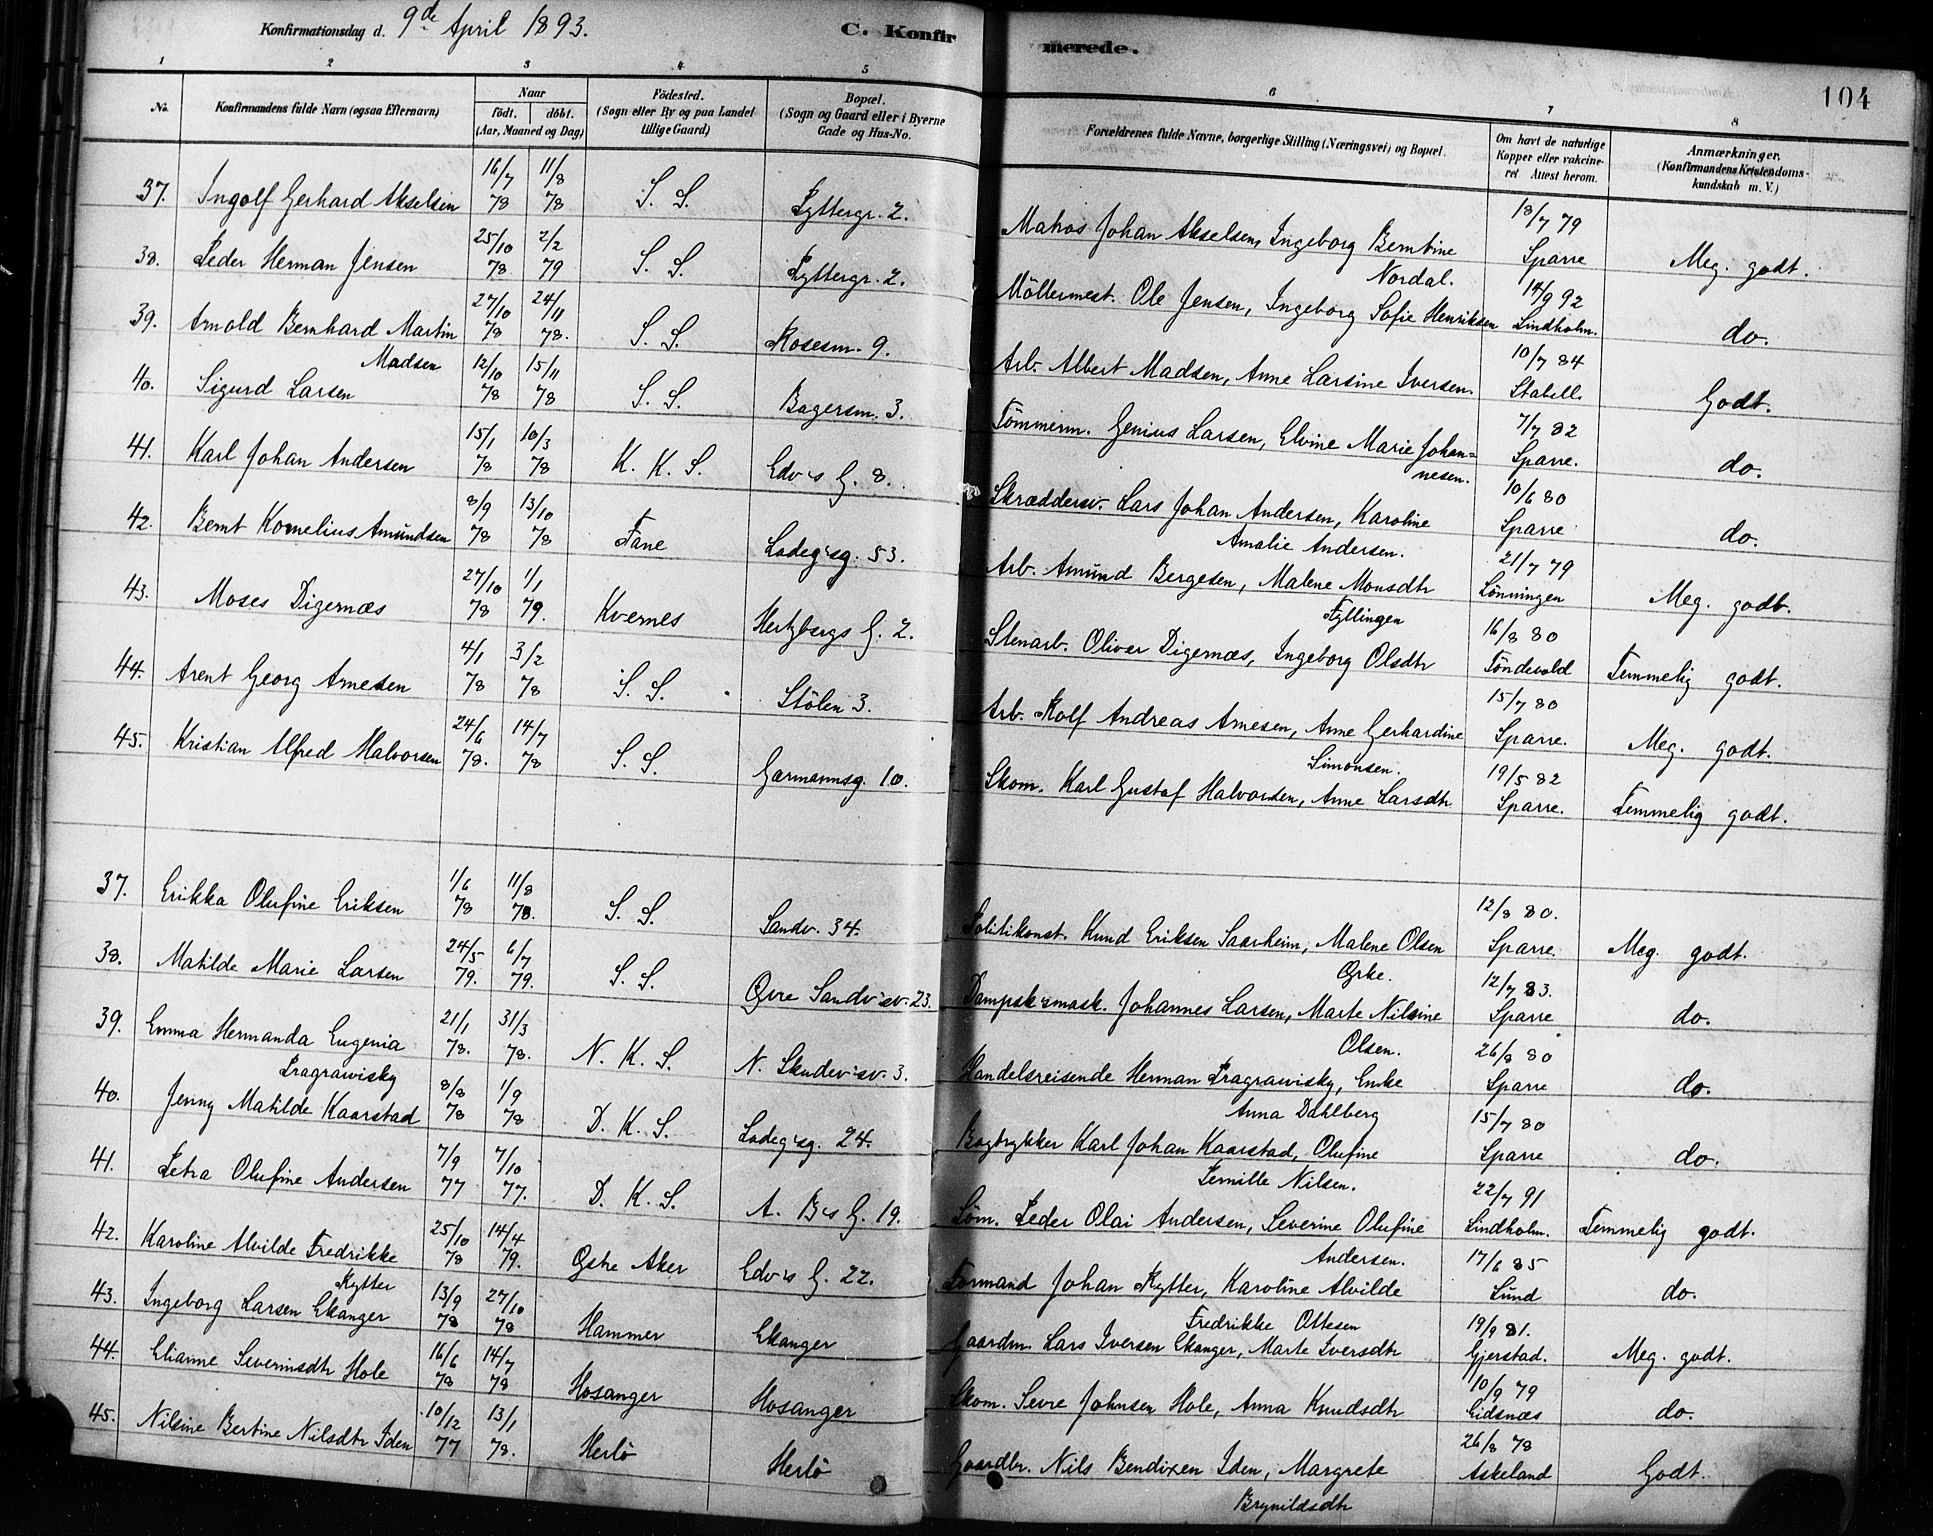 Konfirmationsdag d. 9de April 1893.
C. Konfirmerede.
104
1 2 3 4 5 6 7 8
No. Konfirmandens fulde Navn (ogsaa Efternavn) Naar født. døbt. (Aar, Maaned og Dag) Födested. (Sogn eller By og paa Landet tillige Gaard) Bopæl. (Sogn og Gaard eller i Byerne Gade og Hus-No. Forældrenes fulde Navne, borgerlige Stilling (Næringsvei) og Bopæl. Om havt de naturlige Kopper eller vakcineret. Attest herom. Anmærkninger. (Konfirmandens Kristendomskundskab m. V.)
37. Ingolf Gerhard Akselsen 16/7 78 11/8 78 S. S. Ryttergr. 2. Matros Johan Akselsen, Ingeborg Berntine Nordal. 18/7 79 Sparre Meg. godt.
38. Peder Herman Jensen 25/10 78 2/2 79 S. S. Ryttergr. 2. Möllermest. Ole Jensen, Ingeborg Sofie Henriksen 14/9 92 Lindholm. do.
39. Arnold Bernhard Martin Madsen 27/10 78 24/11 78. S. S. Rosesm. 9. Arb. Albert Madsen, Anne Larsine Iversen. 10/7 84 Stabell. Godt.
40. Sigurd Larsen 12/10 78 15/11 78 S. S. Bagersm. 3. Tömmerm. Genius Larsen, Elvine Marie Johannesen. 7/7 82 Sparre. do.
41. Karl Johan Andersen 15/1 78 10/3 78 K. K. S. Edv's G. 8. Skræddersv. Lars Johan Andersen, Karoline Amalie Andersen. 10/6 80 Sparre do.
42. Bernt Kornelius Amundsen 8/9 78 13/10 78 Fane Ladeg'sg. 53. Arb. Amund Bergesen, Malene Monsdtr Fyllingen 21/7 79 Lönningen Meg. godt.
43. Moses Digernæs 27/10 78 1/1 79. Kvernes Hertzbergs G. 2. Stenarb. Oliver Digernæs, Ingeborg Olsdtr 16/8 80 Töndevold Temmelig godt.
44. Arent Georg Arnesen 4/1 78 3/2 78 S. S. Stölen 3. Arb. Rolf Andreas Arnesen, Anne Gerhardine Simonsen. 15/7 80 Sparre. Meg. godt.
45. Kristian Alfred Halvorsen 24/6 78. 14/7 78 S. S. Garmannsg. 10. Skom. Karl Gustaf Halvorsen, Anne Larsdtr 19/5 82 Sparre. Temmelig godt.
37. Erikka Olufine Eriksen 1/6 78 11/8 78. S. S. Sandv. 34. Politikonst. Knud Eriksen Saarheim, Malene Olsen 12/8 80. Sparre. Meg. godt.
38. Matilde Marie Larsen 24/5 79. 6/7 79. S. S. Øvre Sandv'sv. 23. Dampsk'smask. Johannes Larsen, Marte Nilsine Olsen. 12/7 83. Sparre do.
39. Emma Hermanda Eugenia Pragrawisky 21/1 78. 31/3 78. N. K. S. N. Skudev'sv. 3. Handelsreisende Herman Pragrawisky, Enke Anna Dahlberg 26/8 80 Sparre do.
40. Jenny Matilde Kaarstad 8/8 78 1/9 78 D. K. S. Ladeg'sg. 24. Bogtrykker Karl Johan Kaarstad, Olufine Pernille Nilsen. 15/7 80 Sparre do.
41. Petra Olufine Andersen 7/9 77 7/10 77. D. K. S. A. B's G. 19. Söm. Peder Olai Andersen, Severine Olufine Andersen. 22/7 91 Lindholm. Temmelig godt.
42. Karoline Alvilde Fredrikke Rytter 25/10 78 14/4 79. Østre Aker Edv's G. 22. Formand Johan Rytter, Karoline Alvilde Fredrikke Ottesen 17/6 85 Lund do.
43. Ingeborg Larsen Ekanger 13/9 78 27/10 78 Hammer Ekanger Gaardm. Lars Iversen Ekanger, Marte Iversdtr 19/9 81. Gjerstad. Meg. godt.
44. Elianne Severinsdtr Hole 16/6 78 14/7 78 Hosanger Hosanger Skom. Sevre Johnsen Hole, Anna Knudsdtr 10/9 79 Eidsnæs do.
45. Nilsine Bertine Nilsdtr Iden 10/12 77 13/1 78. Herlö Herlö Gaardbr. Nils Bendixen Iden, Margrete Brynildsdtr 26/8 78 Askeland Godt.